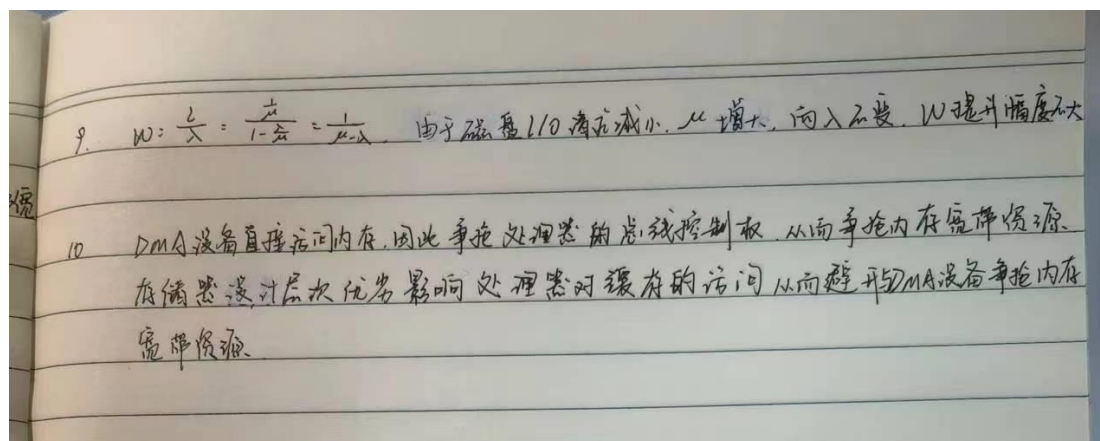 9. W = L/λ = (1/μ)/(1-λ/μ) = 1/(μ-λ). 由于磁盘I/O请求减小. μ增大, 而λ不变. W提升幅度不大
10 DMA设备直接访问内存, 因此争抢处理器的总线控制权. 从而争抢内存宽带资源.
存储器设计层次优劣影响处理器对缓存的访问从而避开与DMA设备争抢内存
宽带资源.
宽